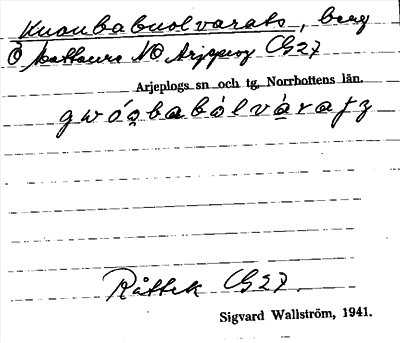 Kuoubabuolvarats, berg
Ö Mattaure NO Arjeplog CG27
Arjeplogs sn och tg, Norrbottens län.
gwóo̭babólváratʒ
Råttek CG27.
Sigvard Wallström, 1941.